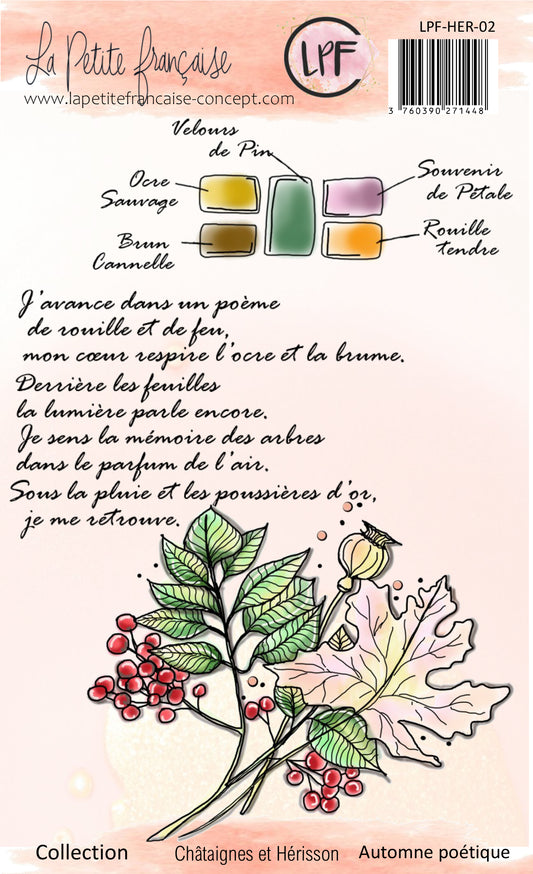 La Petite française
www.lapetitefrancaise-concept.com
LPF
LPF-HER-02
3 760390 271448
Velours
de Pin
Ocre
Sauvage
Souvenir
de Pétale
Brun
Cannelle
Rouille
tendre
J'avance dans un poème
de rouille et de feu,
mon cœur respire l'ocre et la brume.
Derrière les feuilles
la lumière parle encore.
Je sens la mémoire des arbres
dans le parfum de l'air.
Sous la pluie et les poussières d'or,
je me retrouve.
Collection
Châtaignes et Hérisson
Automne poétique